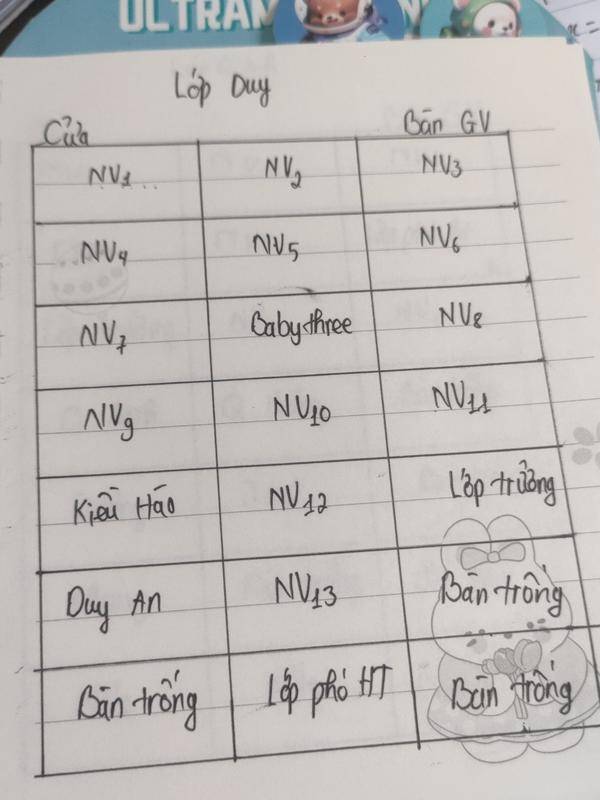 ULTRAN
Lớp Duy
Cửa Bàn GV
NV1 NV2 NV3
NV4 NV5 NV6
NV7 Babythree NV8
NV9 NV10 NV11
Kiều Hảo NV12 Lớp trưởng
Duy An NV13 Bàn trống
Bàn trống Lớp phó HT Bàn trống